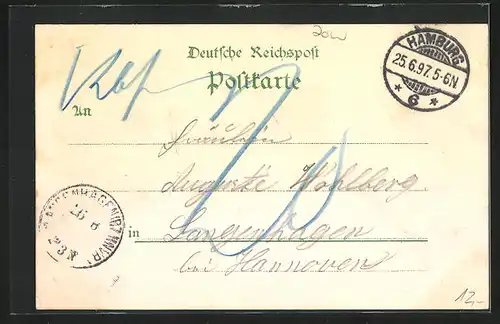 20W
Deutsche Reichspost
Postkarte
HAMBURG
25.6.97.5-6N.
* 6 *
An
Fräulein
Auguste Wohlberg
in Langenhagen
bei Hannover
LANGENHAGEN
12,-